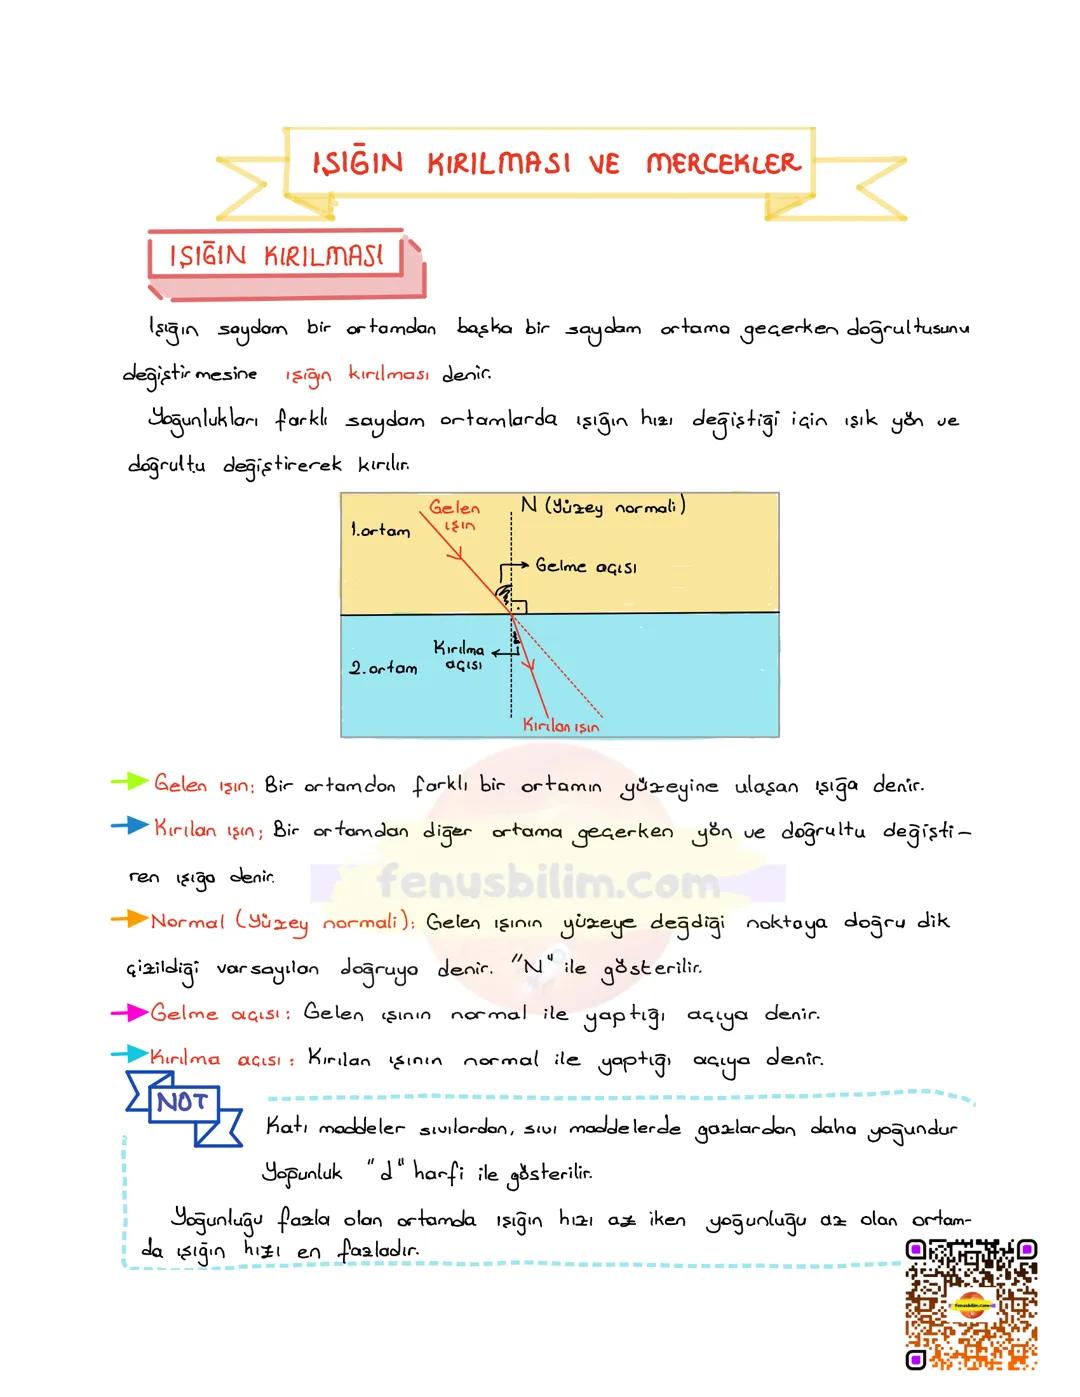 IŞIĞIN KIRILMASI VE MERCEKLER
IŞIĞIN KIRILMASI
Işığın saydam bir ortamdan başka bir saydam ortama geçerken doğrultusunu
değiştirmesine ışığın kırılması denir.
Yoğunlukları farklı saydam ortamlarda ışığın hızı değiştiği için ışık yön ve
doğrultu değiştirerek kırılır.
Gelen
ışın
N (Yüzey normali)
1.ortam
Gelme açısı
Kırılma
açısı
2.ortam
Kırılan ışın
Gelen ışın; Bir ortamdan farklı bir ortamın yüzeyine ulaşan ışığa denir.
Kırılan ışın; Bir ortamdan diğer ortama geçerken yön ve doğrultu değişti-
ren ışığa denir.
fenusbilim.com
Normal (Yüzey normali); Gelen ışının yüzeye değdiği noktaya doğru dik
çizildiği varsayılan doğruya denir. "N" ile gösterilir.
Gelme açısı: Gelen ışının normal ile yaptığı açıya denir.
Kırılma açısı: Kırılan ışının normal ile yaptığı açıya denir.
NOT
Katı maddeler sıvılardan, sıvı maddelerde gazlardan daha yoğundur
Yoğunluk "d" harfi ile gösterilir.
Yoğunluğu fazla olan ortamda ışığın hızı az iken yoğunluğu az olan ortam-
da ışığın hızı en fazladır.
fenusbilim.com